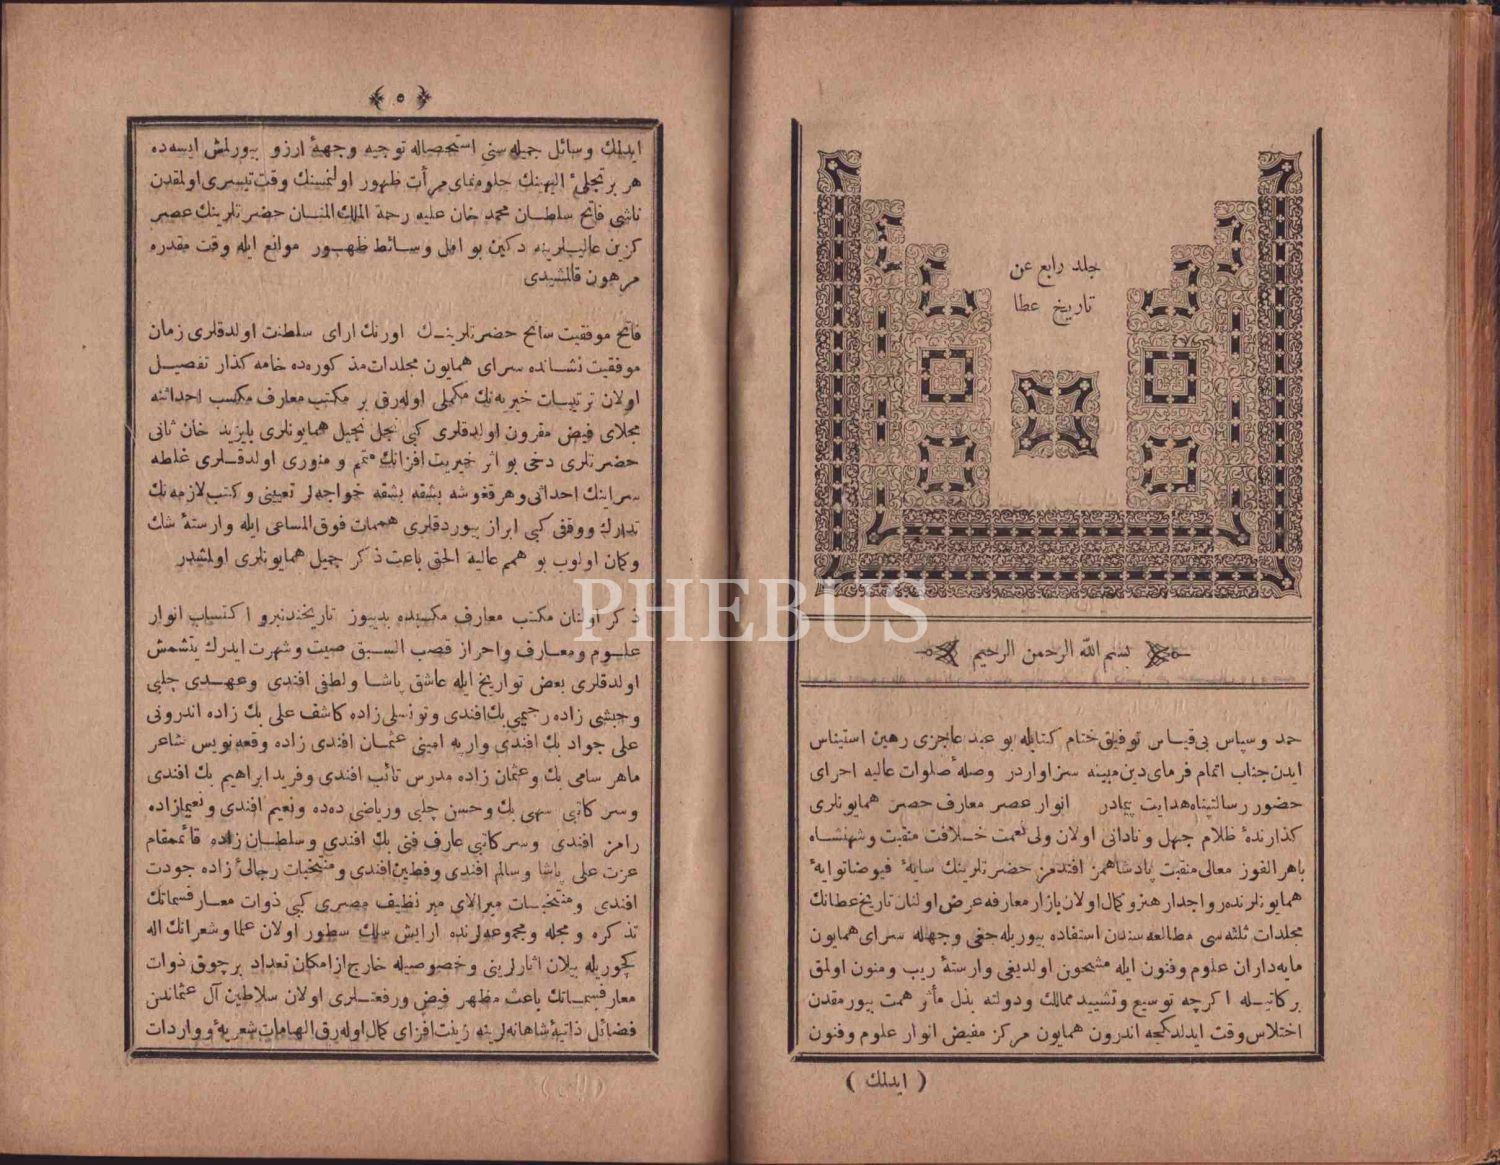 جلد رابع عن
تاريخ عطا
بسم الله الرحمن الرحيم
حمد وسپاس بی‌قیاس توفیق ختام کتابله بو عبد عاجزی رهین استیناس
ایدن جناب اتمام فرمای دین مبینه سزاواردر وصلهٔ صلوات عالیه احرای
حضور رسالتپناه هدایت پیمادر انوار عصر معارف حصر همایونلری
کذارندهٔ ظلام جهل ونادانی اولان ولی نعمت خلافت منقبت وشهنشاه
باهر الفوز معالی منقبت پادشاهمز افندمز حضرتلرینك سایهٔ فیوضاتوایهٔ
همایونلرنده رواجدار هنر وکمال اولان بازار معارفه عرض اولنان تاریخ عطانك
مجلدات ثلثه‌سی مطالعه سندن استفاده بیوریله‌جغی وجهله سرای همایون
مایه‌داران علوم وفنون ایله مشحون اولدیغی وارستهٔ ریب ومنون اولمق
برکاتیله اکرچه توسیع وتشیید ممالك ودولته بذل مأثر همت بیورمقدن
اختلاس وقت ایدلدکجه اندرون همایون مرکز مفیض انوار علوم وفنون
( ایدلمك )
٥
ایدلمك وسائل جمیله سنی استحصاله توجیه وجههٔ ارزو بیورلمش ایسه‌ده
هر برتجلیٔ الهینك جلوه‌نمای مرأت ظهور اولنمسنك وقت تیسری اولمقدن
ناشی فاتح سلطان محمد خان علیه رحمة الملك المنان حضرتلرینك عصر
کزین عالیلرینه دکین بو امل وسائط ظهور موانع ایله وقت مقدره
مرهون قالمشیدی
فاتح موفقیت سانح حضرتلرینك اورنك ارای سلطنت اولدقلری زمان
موفقیت نشانده سرای همایون مجلدات مذکوره‌ده خامه کذار تفصیل
اولان ترتیبات خیریه‌نك مکملی اوله‌رق بر مکتب معارف مکسب احداثنه
مجلای فیض مقرون اولدقلری کبی نجل نجیل همایونلری بایزید خان ثانی
حضرتلری دخی بو اثر خیریت افزانك متمم و منوری اولدقلری غلطه
سراینك احداثی وهر قغوشه بشقه بشقه خواجه‌لر تعیینی وکتب لازمه‌نك
تدارك ووقفی کبی ابراز بیوردقلری هممات فوق المساعی ایله وارستهٔ شك
وکان اولوب بو همم عالیه الحق باعث ذکر جمیل همایونلری اولمشیدر
ذکر اولنان مکتب معارف مکسبده بدییوز تاریخندنبرو اکتساب انوار
علوم ومعارف واحراز قصب السبق صیت وشهرت ایدرك یتشمش
اولدقلری بعض تواریخ ایله عاشق پاشا ولطفی افندی وعهدی چلبی
وحبشی زاده رحیمی بك افندی وتونسلی زاده کاشف علی بك زاده اندرونی
علی جواد بك افندی واریه امینی عثمان افندی زاده وقعه‌نویس شاعر
ماهر سامی بك وعثمان زاده مدرس تائب افندی وفرید ابراهیم بك افندی
وسر کاتبی سهی بك وحسن چلبی وریاضی دده ونعیم افندی ونعیمازاده
رامز افندی وسر کاتبی عارف فنی بك افندی وسلطان زاده قائمقام
عزت علی پاشا وسالم افندی وفطین افندی ومنتخبات رجالیٔ زاده جودت
افندی ومنتخبات میرالای میر نظیف مصری کبی ذوات معارفسماتك
تذکره و مجله ومجموعه‌لرنده ارایش سلك سطور اولان علما وشعرانك اله
کچوریله بیلان اثارلرینی وخصوصیله خارج از امکان تعداد برچوق ذوات
معارفسماتك باعث مظهر فیض ورفعتلری اولان سلاطین آل عثماندن
فضائل ذاتیهٔ شاهانه‌لرینه زینت افزای کمال اوله‌رق الهامات شعریه و واردات